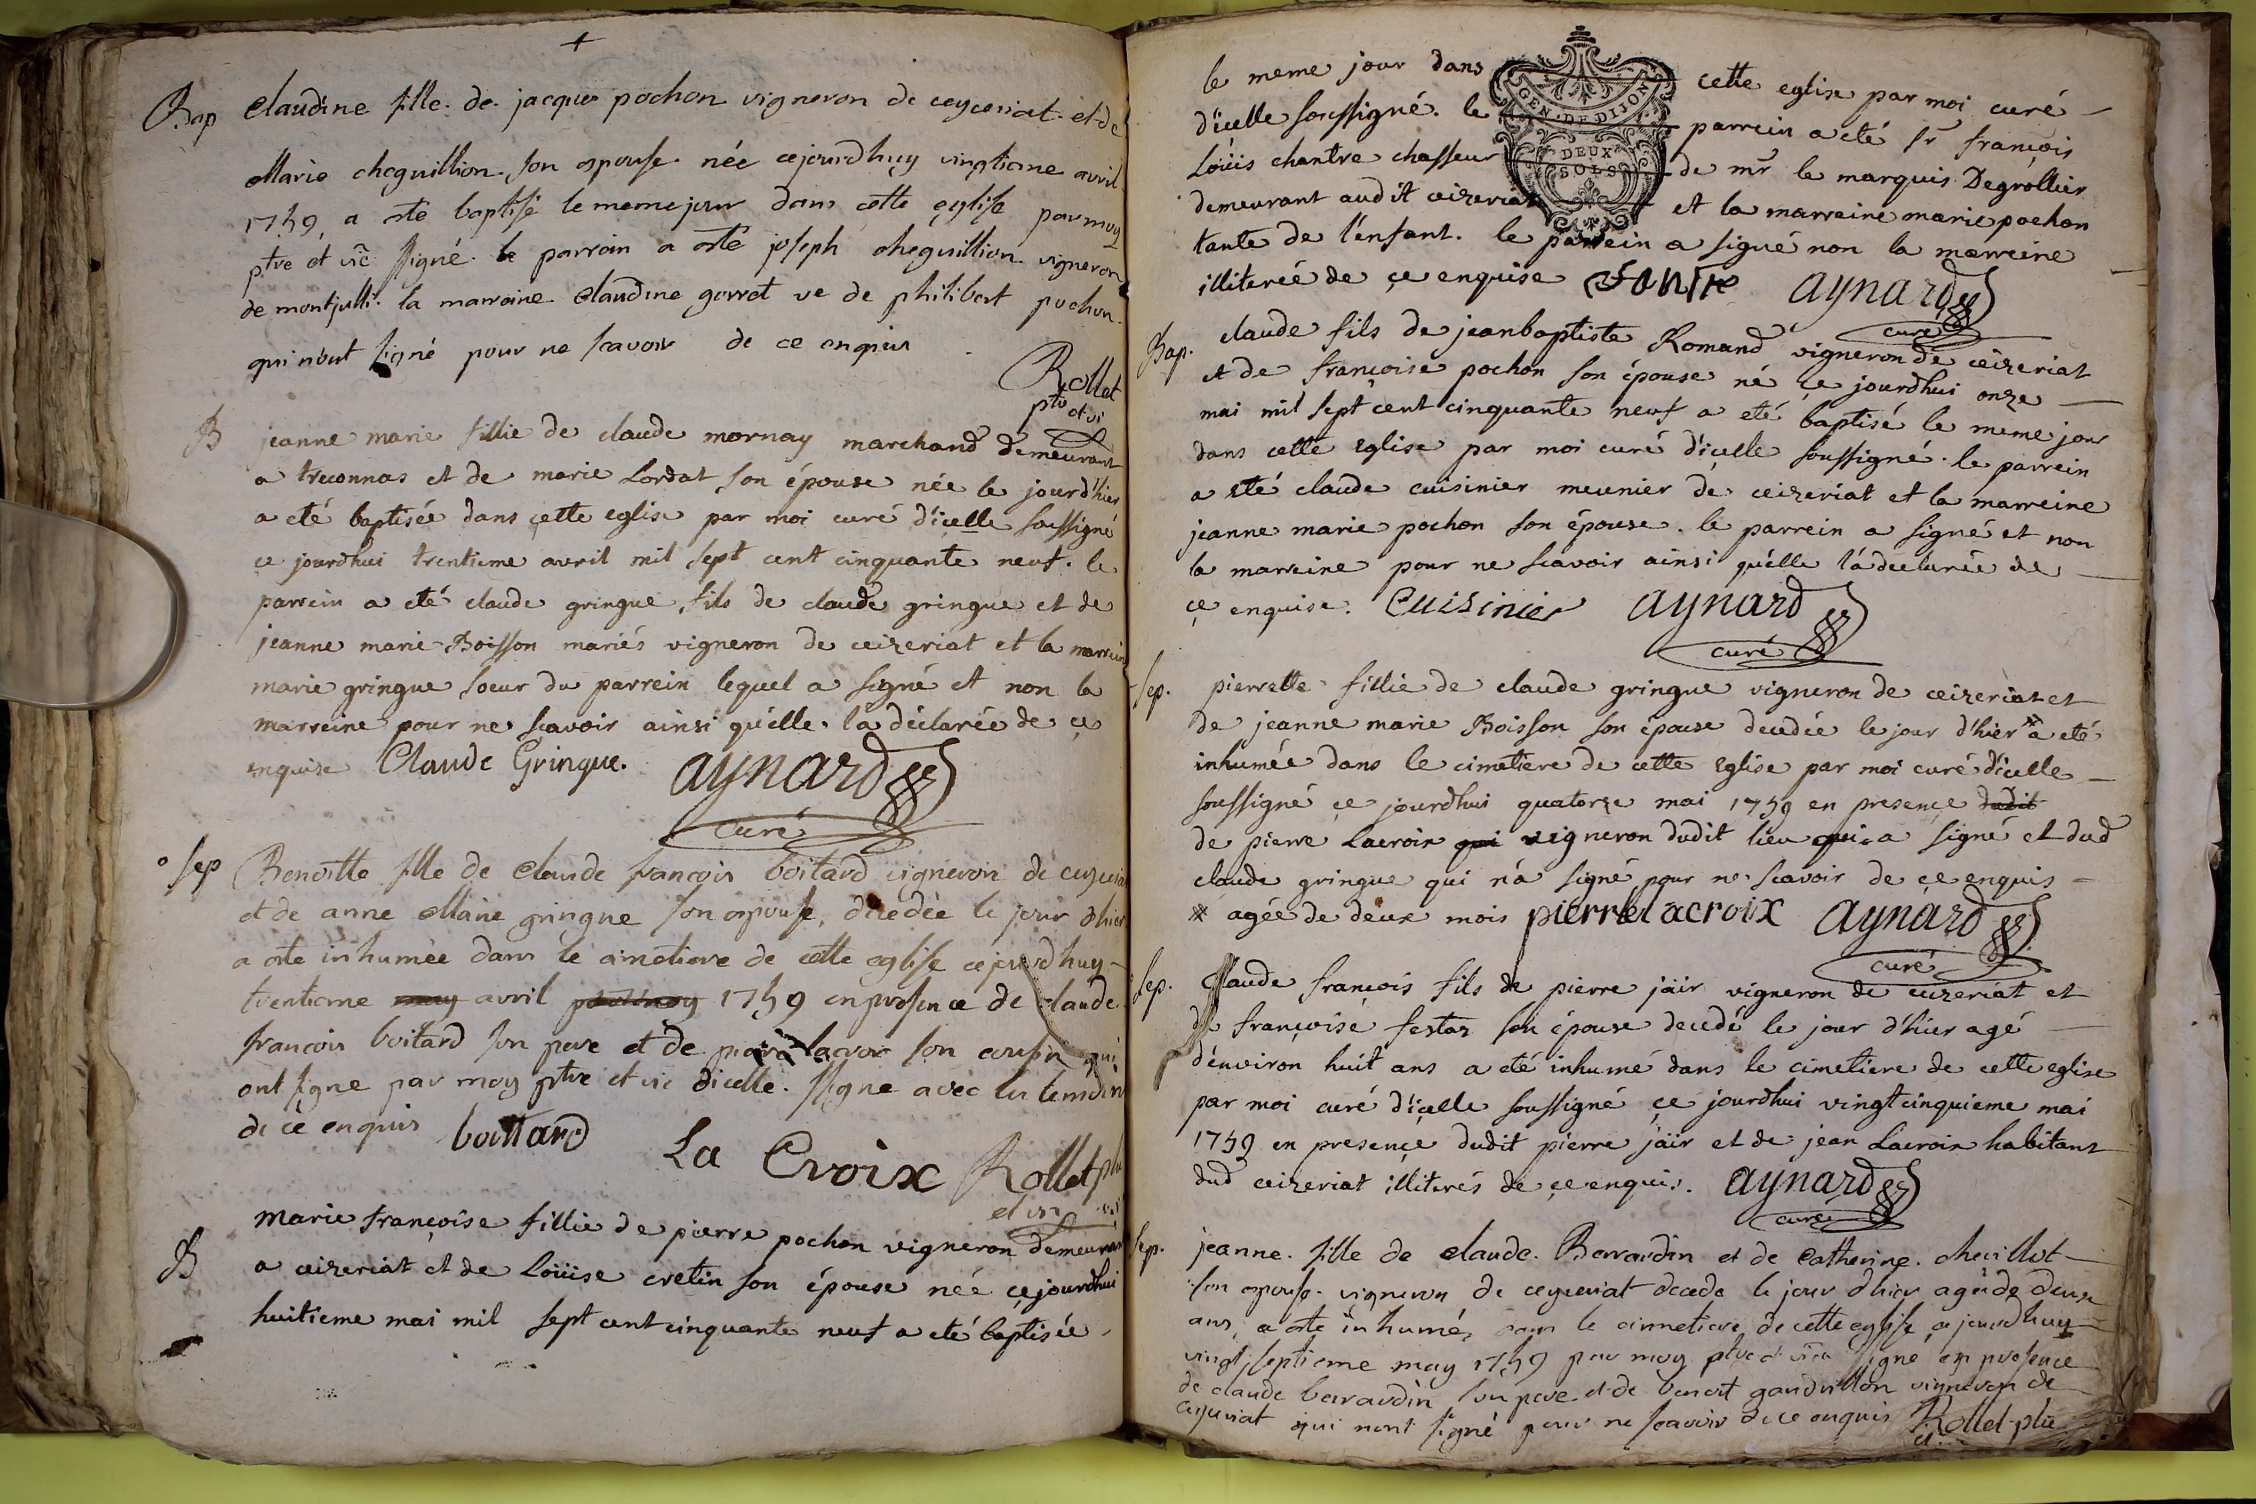 Bap Claudine fille de jacques pochon vigneron de ceyceriat et de
Marie cheguillion son epouse née cejourdhuy vingtieme avril
1759 a eté baptisé le meme jour dans cette eglise par moy
ptre et vic signé le parrain a eté joseph cheguillion vigneron
de montjulli la marraine Claudine gorret ve de philibert pochon
qui n'ont signé pour ne scavoir de ce enquis
Rollet
ptre et vi
B jeanne marie fillie de claude mornay marchand demeurant
a treconnas et de marie Lordat son épouse née le jourd'hier
a eté baptisée dans cette eglise par moi curé d'icelle soussigné
ce jourdhui trentieme avril mil sept cent cinquante neuf. le
parrein a eté claude gringue fils de claude gringue et de
jeanne marie Boisson mariés vigneron de ceizeriat et la marrein
marie gringue soeur du parrein lequel a signé et non la
marreine pour ne scavoir ainsi quélle la déclarée de ce
enquise Claude Gringue. aynard
curé
sep Benoitte fille de Claude francois boitard vigneron de ceyceria
et de anne Marie gringue son epouse, décedée le jour d'hier
a ete inhumée dans le cimetiere de cette eglise cejourdhuy
trentieme may avril 1759 en presence de claude
francois boitard son pere et de pierre lacroi son cousin qui
ont signe par moy ptre et vic dicelle. signe avec les temoin
de ce enquis boittard La Croix Rollet ptre
et vi
B marie françoise fillie de pierre pochon vigneron demeurant
a ceizeriat et de Loüise cretin son épouse née ce jourdhui
huitieme mai mil sept cent cinquante neuf a eté baptisée
le meme jour dans cette eglise par moi curé
GEN. DE DIJON
DEUX
SOLS
d'icelle soussigné. le parrein a eté sr françois
Loüis chantre chasseur de mr le marquis Degrollier
demeurant audit ceizeriat et la marreine marie pochon
tante de l'enfant. le parrein a signé non la marreine
illiterée de ce enquise aynard
curé
Bap. claude fils de jeanbaptiste Romand vigneron de ceizeriat
et de françoise pochon son épouse né ce jourdhui onze
mai mil sept cent cinquante neuf a eté baptisé le meme jour
dans cette eglise par moi curé d'icelle soussigné. le parrein
a eté claude cuisinier meunier de ceizeriat et la marreine
jeanne marie pochon son épouse. le parrein a signé et non
la marreine pour ne scavoir ainsi quélle l'a declarée de
ce enquise. Cuisinier aynard
curé
sep. pierrette fillie de claude gringue vigneron de ceizeriat et
de jeanne marie Boisson son épouse decedée le jour d'hier * a eté
inhumée dans le cimetiere de cette eglise par moi curé d'icelle
soussigné ce jourdhui quatorze mai 1759 en presence dudit
de pierre Lacroix qui vigneron dudit lieu qui a signé et dud
claude gringue qui n'a signé pour ne scavoir de ce enquis
* agée de deux mois pierre lacroix aynard
curé
sep. Claude françois fils de pierre jäir vigneron de ceizeriat et
de françoise festaz son épouse decedé le jour d'hier agé
d'environ huit ans a eté inhumé dans le cimetiere de cette eglise
par moi curé d'icelle soussigné ce jourdhui vingtcinquieme mai
1759 en presence dudit pierre jäir et de jean Lacroix habitans
dud ceizeriat illiterés de ce enquis. aynard
curé
sep. jeanne fille de claude Berrardin et de Catherine chevillot
son epouse vigneron de ceyceriat decede le jour d'hier agée de deux
ans, a ete inhumé dans le cimmetiere de cette eglise cejourdhuy
vingt septieme may 1759 par moy ptre et vic signé en presence
de claude berrardin son pere et de benoit gaudvillon vigneron de
ceyceriat qui nont signé pour ne scavoir de ce enquis Rollet ptre